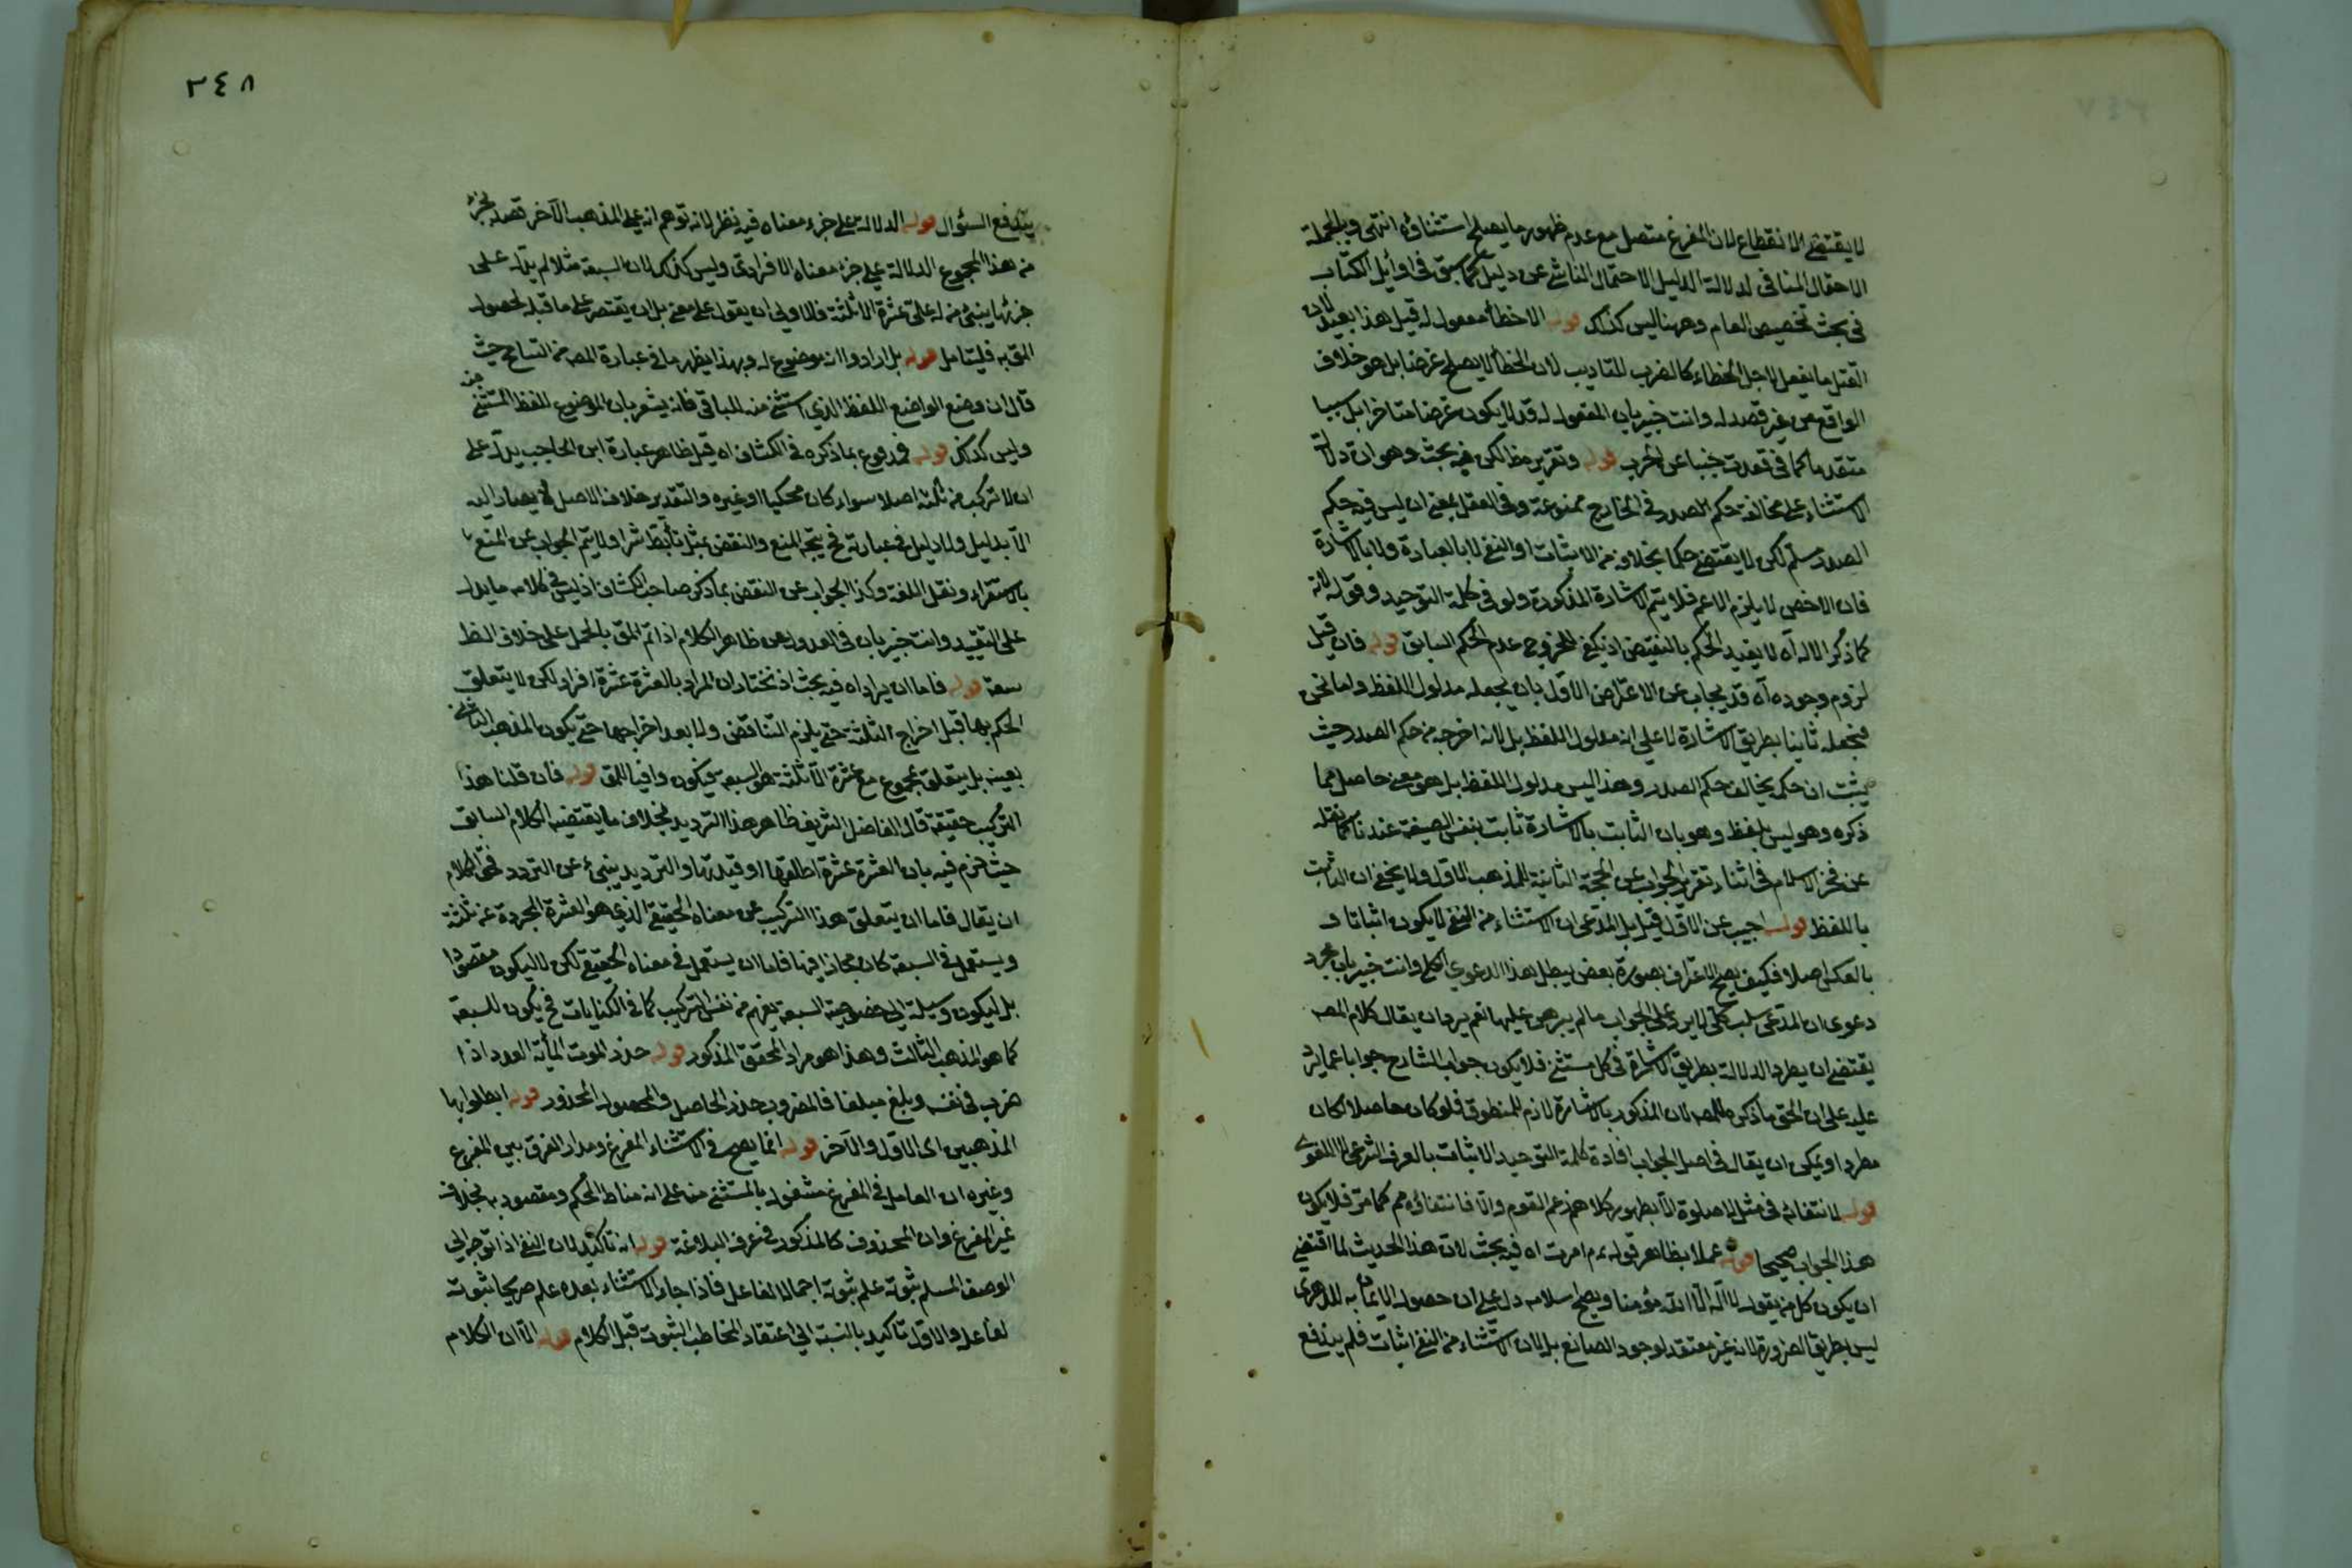 لا يقتضي الانقطاع لان المفرغ متصل مع عدم ظهور ما يصلح استثناؤه انتهى وبالجملة
الاحتمال المنافى لدلالة الدليل الاحتمال الناشئ عن دليل كما سبق فى اوائل الكتاب
فى بحث تخصيص العام وههنا ليس كذلك قوله الا خطأ مفعول له قيل هذا بعيد لان
القتل ما يفعل لاجل الخطاء كالضرب للتاديب لان الخطأ لا يصلح غرضا بل هو خلاف
الواقع من غير قصد له وانت خبير بان المفعول له قد لا يكون غرضا متاخرا بل سببا
متقدما كما فى قعدت جبنا عن الحرب قوله وتقرير مظ لكن فيه بحث وهو ان دلالة
الاستثناء على مخالفة حكم الصدر فى الخارج ممنوعة وفى العقل بمعنى ان ليس فيه حكم
الصدر مسلم لكن لا يقتضى حكما بخلافه من الاثبات او النفى لا بالعبارة ولا بالاشارة
فان الاخص لا يلزم الاعم فلا يتم الاشارة المذكورة ولو فى كلمة التوحيد وقوله لانه
كما ذكر الاله آه لا يفيد الحكم بالنقيض اذ يكفى للخروج عدم الحكم السابق قوله فان قيل
لزوم وجوده آه قد يجاب عن الاعتراض الاول بان يجعله مدلول اللفظ واما نحن
فنجعله ثابتا بطريق الاشارة لا على انه مدلول اللفظ بل لانه اخرجه من حكم الصدر حيث
يثبت ان حكمه يخالف حكم الصدر وهذا ليس مدلول اللفظ بل هو معنى حاصل مما
ذكره وهو ليس بلفظ وهو بان الثابت بالاشارة ثابت بنفس الصيغة عندنا كما نقله
عن فخر الاسلام فى اثناء تقرير الجواب عن الحجة الثانية للمذهب الاول ولا يخفى ان الثابت
باللفظ قوله اجيب عن الاول قيل بل المدعى ان الاستثناء من النفى لا يكون اثباتا و
بالعكس اصلا فكيف يصح الاعتراف بصورة بعض يبطل هذا الدعوى الكلى وانت خبير بان مجرد
دعوى ان المدعى سلب كلى لا يرد على الجواب ما لم يبرهن عليها نعم يرد ان يقال كلام المصه
يقتضى ان يطرد الدلالة بطريق الاشارة فى كل مستثنى فلا يكون جواب الشارح جوابا عما يرد
عليه على ان الحق ما ذكره المصه لان المذكور بالاشارة لازم للمنطوق فلو كان حاصلا لكان
مطردا ويمكن ان يقال فى اصل الجواب افادة كلمة التوحيد الاثبات بالعرف الشرعى لا اللغوى
قوله لانتفائه فى مثل لا صلوة الا بطهور كلا هم زعم القوم والا فانتفاؤه مم كما مر فلا يكون
هذا الجواب صحيحا قوله عملا بظاهر قوله عم امرت اه فيه بحث لان هذا الحديث لما اقتضى
ان يكون كل من يقول لا اله الا الله مؤمنا ويصح اسلامه دل على ان حصول الايمان به للدهرى
ليس بطريق الضرورة لانه غير معتقد لوجود الصانع بل لان الاستثناء من النفى اثبات فلم يندفع
٣٤٨
يندفع السؤال قوله الدلالة على جزء معناه فيه نظر لانه توهم انه على المذهب الآخر قصد بجزء
من هذا المجموع الدلالة على جزء معناه الافرادى وليس كذلك لان السبعة مثلا لم يدل على
جزئها ينبئ من له على عشرة الا ثلثة فالاولى ان يقول على معنى بل ان يقتصر على ما قبله لحصول
المق به فليتامل قوله بل ارادوا انه موضوع له وبهذا يظهر ما فى عبارة المصه من التسامح حيث
قال ان وضع الواضع اللفظ الذى استثنى منه للباقى فانه يشعر بان الموضوع للفظ المستثنى منه
وليس كذلك قوله فمدفوع بما ذكره فى الكشاف اه قيل ظاهر عبارة ابن الحاجب يدل على
ان لا تركيب من ثلثة اصلا سواء كان محكيا او غيره والتقدير خلاف الاصل لا يصار اليه
الا بدليل ولا دليل فى عبارته فح يتجه المنع والنقض بمثل تأبط شرا ولا يتم الجواب عن المنع
بالاستقراء ونقل اللغة وكذا الجواب عن النقض بما ذكر صاحب الكشاف اذ ليس فى كلامه ما يدل
على التقييد وانت خبير بان فى العدول عن ظاهر الكلام اذا تم المق بالحمل على خلاف الظ
سعة قوله فاما ان يراد اه فيه بحث اذ نختار ان المراد بالعشرة عشرة افراد لكن لا يتعلق
الحكم بها قبل اخراج الثلثة حتى يلزم التناقض ولا بعد اخراجها حتى يكون المذهب الثانى
بعينه بل يتعلق بمجموع مع عشرة الا ثلثة هو السبعة فيكون وافيا للمق قوله فان قلنا هذا
التركيب حقيقة قال الفاضل الشريف ظاهر هذا الترديد بخلاف ما يقتضيه الكلام السابق
حيث جزم فيه بان العشرة عشرة اطلقتها او قيدتها والترديد ينبئ عن التردد فحق الكلام
ان يقال فاما ان يتعلق هذا التركيب عن معناه الحقيقى الذى هو العشرة المجردة عن ثلثة
ويستعمل فى السبعة كان مجازا فيها فاما ان يستعمل فى معناه الحقيقى لكن لا ليكون مقصودا
بل ليكون وسيلة الى خصوصية السبعة يفهم من نفس التركيب كما فى الكنايات فح يكون للسبعة
كما هو المذهب الثالث وهذا هو مراد المحقق المذكور قوله جذر الموت المأتة العدد اذا
ضرب فى نفسه وبلغ مبلغا فالمضروب جذر الحاصل والمحصول المجذور قوله ابطلوا بها
المذهبين اى الاول والآخر قوله انما يصح فى الاستثناء المفرغ ومدار الفرق بين المفرغ
وغيره ان العامل فى المفرغ مشغول بالمستثنى منه على انه مناط الحكم ومقصود به بخلاف
غير المفرغ وان المحذوف كالمذكور فى عرف البلاغة قوله انه تاكيد لان النفى اذا توجه الى
الوصف المسلم ثبوته علم ثبوته اجمالا لفاعل فاذا جاء الاستثناء بعده علم صريحا ثبوته
لفاعل والاول تاكيد بالنسبة الى اعتقاد المخاطب الثبوت قبل الكلام قوله الا ان الكلام